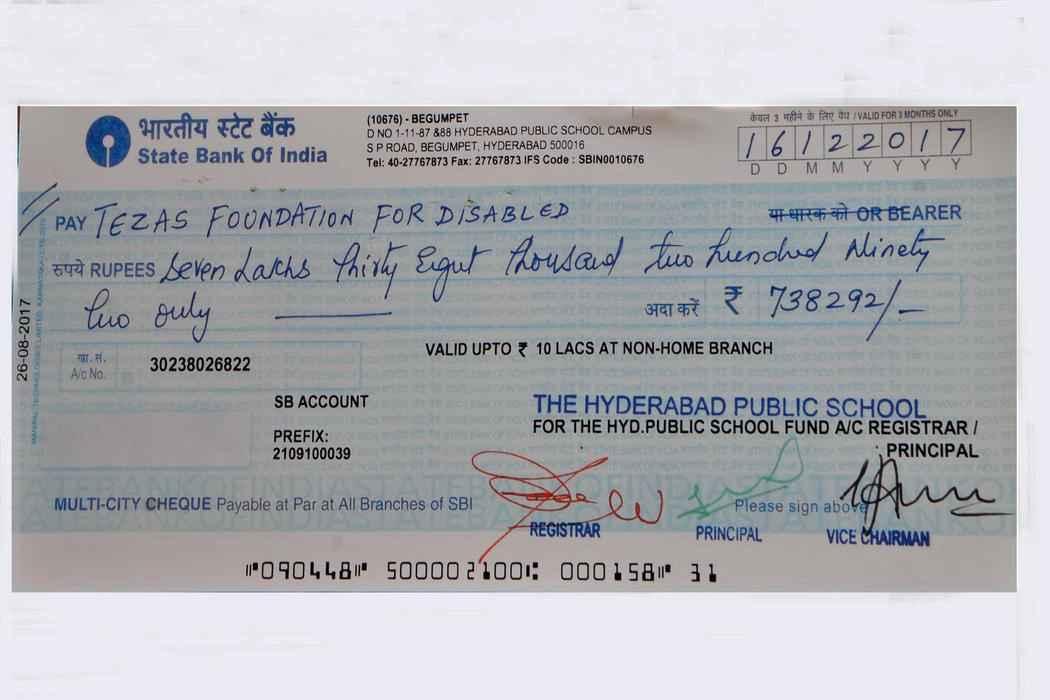 भारतीय स्टेट बैंक
State Bank Of India
(10676) - BEGUMPET
D NO 1-11-87 &88 HYDERABAD PUBLIC SCHOOL CAMPUS
S P ROAD, BEGUMPET, HYDERABAD 500016
Tel: 40-27767873 Fax: 27767873 IFS Code : SBIN0010676
केवल 3 महीने के लिए वैध / VALID FOR 3 MONTHS ONLY
16122017
D D M M Y Y Y Y
PAY TEZAS FOUNDATION FOR DISABLED
या धारक को OR BEARER
रुपये RUPEES Seven Lakhs Thirty Eight Thousand two hundred Ninety
two only
अदा करें ₹ 738292/-
26-08-2017
खा. सं.
A/c No.
30238026822
VALID UPTO ₹ 10 LACS AT NON-HOME BRANCH
SB ACCOUNT
PREFIX:
2109100039
THE HYDERABAD PUBLIC SCHOOL
FOR THE HYD.PUBLIC SCHOOL FUND A/C REGISTRAR /
PRINCIPAL
MULTI-CITY CHEQUE Payable at Par at All Branches of SBI
Please sign above
REGISTRAR
PRINCIPAL
VICE CHAIRMAN
⑈090448⑈ 500002100⑆ 000158⑈ 31